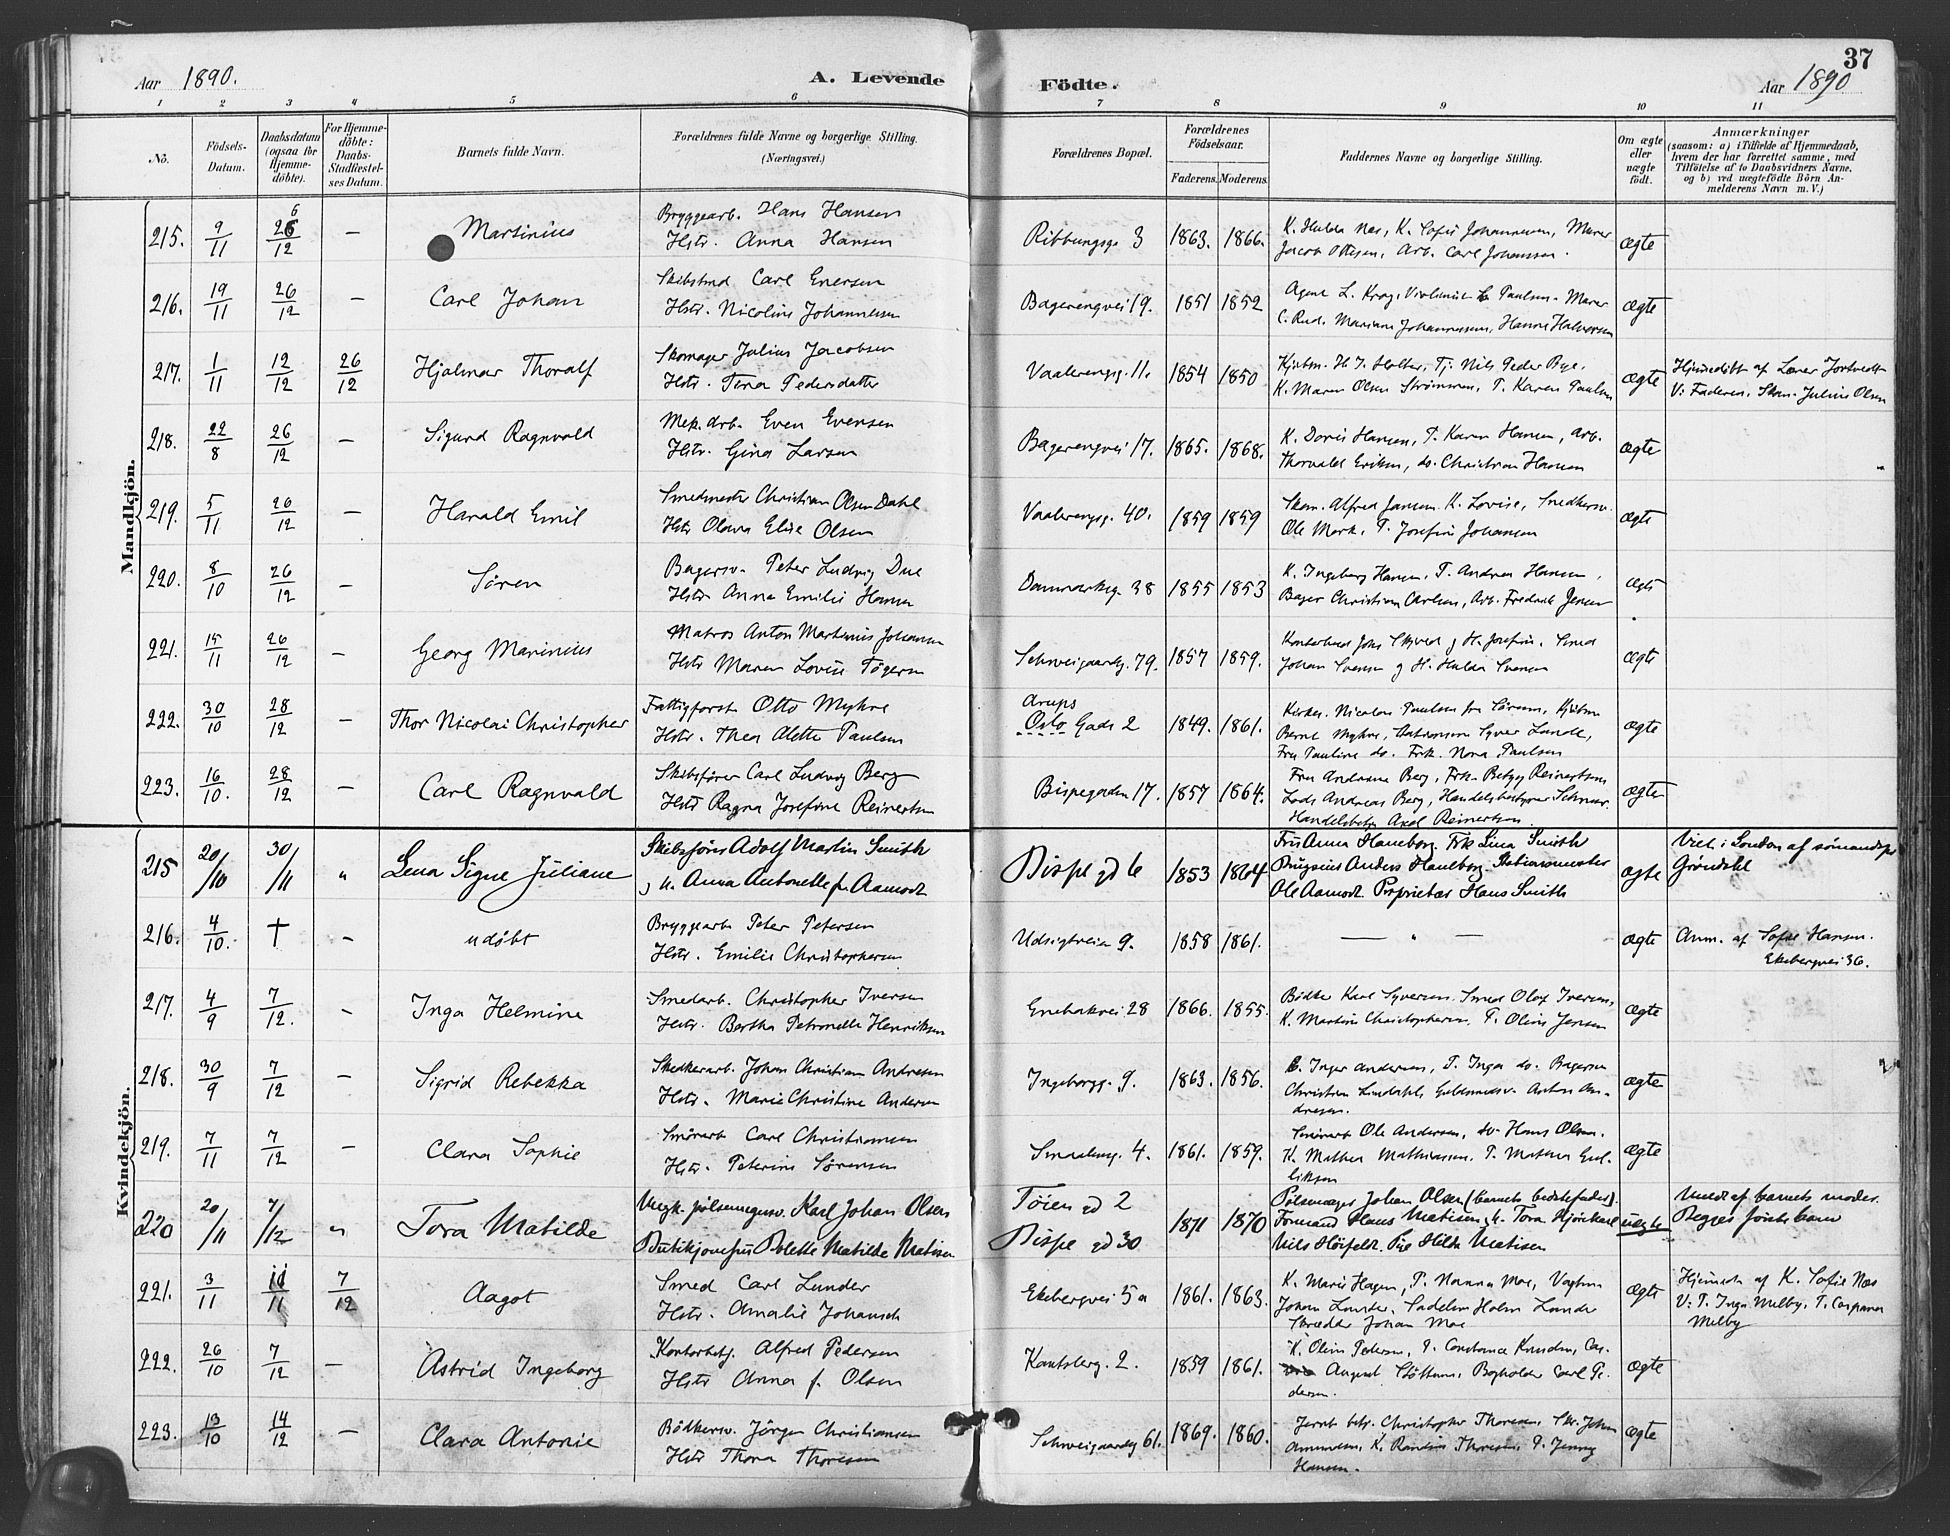 37
Aar 1890. A. Levende Födte. Aar 1890
1 2 3 4 5 6 7 8 9 10 11
No. Födsels-Datum. Daabsdatum (ogsaa for Hjemmedöbte). For Hjemmedöbte: Daabs-Stadfæstelses Datum. Barnets fulde Navn. Forældrenes fulde Navne og borgerlige Stilling. (Næringsvei.) Forældrenes Bopæl. Forældrenes Födselsaar. Faderens. Moderens. Faddernes Navne og borgerlige Stilling. Om ægte eller uægte födt. Anmærkninger (saasom: a) i Tilfælde af Hjemmedaab, hvem der har forrettet samme, med Tilföielse af to Daabsvidners Navne, og b) ved uægtefödte Börn Anmelderens Navn m. V.)
Mandkjön.
215. 9/11 26/12 — Martinius Bryggearb. Hans Hansen Ribbungsg. 3 1863. 1866. K. Hulda Næs, K. Sofie Johannesen, Murer ægte
Hstr. Anna Hansen Jacob Ottesen, Arb. Carl Johansen.
216. 19/11 26/12 — Carl Johan Skibstmd Carl Enersen Bagerengvei 19. 1851 1852 Agent L. Krog, Paulsen. Murer ægte
Hstr. Nicoline Johannesen C. Rud. Mariane Johannesen, Hanna Halvorsen
217. 1/11 12/12 26/12 Hjalmar Thoralf Skomager Julius Jacobsen Vaalerengg. 11. 1854 1850 Kjøbm. H. J. Holter, Tj. Nils Peder Bye, ægte Hjemmedøbt af Lærer
Hstr. Tina Pedersdatter K. Maren Olsen Strømmen, P. Karen Paulsen V: Faderen, Skom. Julius Olsen
218. 22/8 26/12 — Sigurd Ragnvald Mek. arb. Even Evensen Bagerengvei 17. 1865. 1868. K. Doris Hansen, P. Karen Hansen, Arb. ægte
Hstr. Gina Larsen Thorvald Eriksen, do. Christian Hansen
219. 5/11 26/12 — Harald Emil Smedmester Christian Olsen Dahl Vaalerengg. 40. 1859 1859 Skom. Alfred Jansen K. Lovise, Snedkersv. ægte
Hstr Olava Elise Olsen Ole Mork, P. Josefine Johansen
220. 8/10 26/12 — Sören Bagersv. Peter Ludvig Due Danmarksg. 38 1855 1853 K. Ingeborg Hansen, P. Andrea Hansen, ægte
Hstr. Anna Emilie Hansen Bager Christian Carlsen, Arb. Fredrik Jensen
221. 15/11 26/12 — Georg Marinius Matros Anton Martinius Johansen Schweigaardsg. 79. 1857 1859. og H. Josefine. Smed ægte
Hstr Maren Lovise Johan Svensen og H. Hulda Svensen
222. 30/10 28/12 — Thor Nicolai Christopher Fattigforst. Otto Myhre Arups 1849. 1861. Nicolai Paulsen fra Sørum, Kjøbm ægte
Hstr. Thea Alette Paulsen Oslo Gade 2 Bernt Myhre,
Fru Pauline do. Frk. Nora Paulsen
223. 16/10. 28/12 — Carl Ragnvald Skibsfører Carl Ludvig Berg Bispegaden 17. 1857 1864. Fru Andrine Berg, Frk. Betzy Reinertsen ægte
Hstr Ragna Josefine Reinertsen Lods Andreas Berg, Handelsbestyrer
Axel Reinertsen.
Kvindekjön.
215 20/10 30/11 „ Lena Signe Juliane Skibsfører Adolf Martin Smith Bispe gd 6 1853 1864 Fru Anna Haneborg. Frk Lina Smith ægte Viet i London af sømandspr
H. Anna Antonette f. Aamodt Anders Haneborg. Stationsmester Grøndahl
Ole Aamodt. Proprietær Hans Smith
216. 4/10. † — udøbt Bryggearb Peter Petersen Udsigtveien 9. 1858 1861. — „ — ægte Anm. af Sofie Hansen.
Hstr. Emilie Christophersen Ekebergvei 36.
217. 4/9 7/12. — Inga Helmine Smedarb. Christopher Iversen Enebakvei 28 1866. 1855. Bødker Karl Syversen. Smed Olaf Iversen, ægte
Hstr. Bertha Petronelle Henriksen K. Martine Christophersen, P. Oline Jensen
218. 30/9 7/12 — Sigrid Rebekka Snedkerarb. Johan Christian Andresen Ingeborgg. 9. 1863. 1856. Inger Andersen, P. Inga do. Bagersv ægte
Hstr. Marie Christine Andersen Christian Lindahl, Guldsmedsv. Anton An-
dresen.
219. 7/11 7/12 — Clara Sophie Carl Christiansen Smaalensg. 4. 1861. 1859. Ole Andersen, do Hans Olsen. ægte
Hstr. Peterine Sørensen K. Mathea Mathiassen, P. Mathea Gul-
liksen
220 20/11 7/12 „ Tora Matilde Ungk. pølsemagersv. Karl Johan Olsen Tøien gd 2 1871 1870 Pølsemager Johan Olsen (barnets bedstefader). uægte Meldt af barnets moder.
Butikjomfru Bolette Matilde Matisen Bispe gd 30 Formand Hans Matisen, H. Tora Begges første barn
Nils Høifeldt. Pige Hilda Matisen
221. 3/11 11/11 7/12 Aagot Smed Carl Lunder Ekebergvei 5a 1861. 1863. K. Marie Hagen, P. Hanna Moe, Vogtm. ægte Hjemmed. af K. Sofie Næs
Hstr. Amalie Johansdt Johan Lunder, Holm Lunde V: P. Inga Melby, P. Caspara
Skrædder Johan Moe Melby
222. 26/10 7/12 — Astrid Ingeborg Kontorbetj. Alfred Pedersen Kantslerg. 2. 1859 1861. K. Oline Pedersen, P. Constance Knudsen, Cas- ægte
Hstr Anna f. Olsen August Bogholder Carl Pe-
dersen.
223. 13/10 14/12 — Clara Antonie Bödkersv. Jörgen Christiansen Schweigaardsg 61. 1869. 1860. Jernb betj. Christopher Thoresen, Skr. Johan ægte
Hstr Thora Thoresen Amundsen, K. Randine Thoresen, P. Jenny
Hansen.